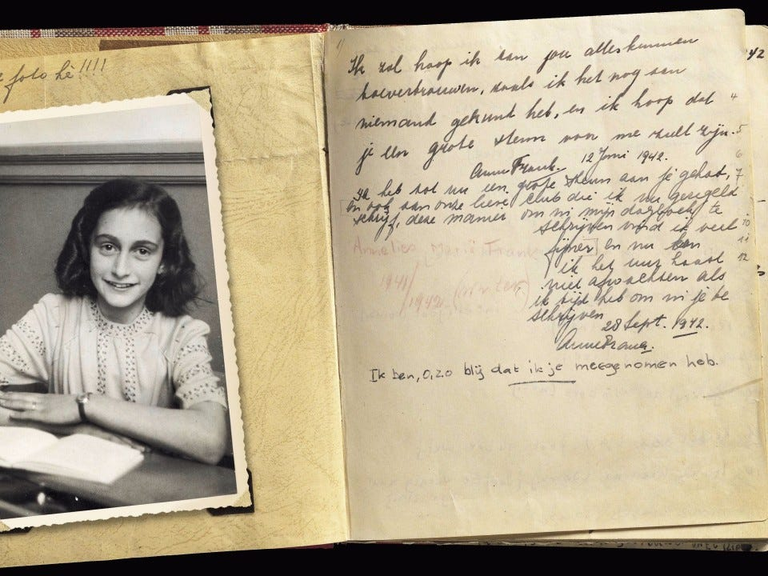 foto hè!!!!
Ik zal hoop ik aan jou alles kunnen
toevertrouwen, zoals ik het nog aan
niemand gekund heb, en ik hoop dat
je een grote steun voor me zult zijn.
Anne Frank. 12 Juni 1942.
Ik heb tot nu een grote steun aan je gehad,
en ook aan onze lieve club die ik nu geregeld
schrijf, deze manier om in mijn dagboek te
schrijven vind ik veel
fijner en nu kan
ik het uur haast
niet afwachten als
ik tijd heb om in je te
schrijven
28 Sept. 1942.
Anne Frank.
Ik ben, o, zo blij dat ik je meegenomen heb.
Annelies Marie Frank
1941/
1942. (winter)
42
4
5
6
7
10
11
12